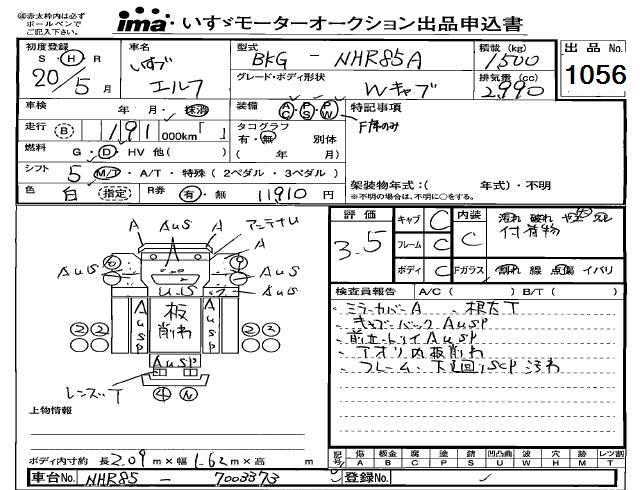 ㊟赤太枠内は必ず
ボールペンで
ご記入下さい。
ima いすゞモーターオークション出品申込書
初度登録 車名 型式 積載(kg) 出品No.
S・H・R いすゞ BKG - NHR85A 1,500
20年 5月 エルフ グレード・ボディ形状 Wキャブ 排気量(cc) 2,990 1056
車検 年 月・抹消 装備 AC PS PW 特記事項
走行 B 191 000km「 」 タコグラフ F席のみ
有・無 別体
燃料 G・D・HV 他( ) ( 年 月)
シフト 5 M/T・A/T・特殊(2ペダル・3ペダル)
色 白 指定 R券 有・無 11,910円
架装物年式:( 年式)・不明
※不明の場合は、不明に○をする。
評価 3.5 キャブ C 内装 C
フレーム C 付着物
ボディ C Fガラス 割れ 線 点傷 イバリ
検査員報告 A/C( ) B/T( )
・ミラーカバーA
・キャブバックAUSP
AUSP
・アオリ内板削れ
・フレーム、下廻りSCP
A AUS A アンテナU
A A
AUS AUS
AUS U・S AUS
AUSP 板削れ AUSP
② ② ② ②
AUSP
レンズT ④ N
上物情報
ボディ内寸約 長2.09m×幅1.62m×高 m
記号 傷 板金 腐 塗 錆 凹凸曲 波 穴 跡 レツ割
A B C P S U W H M T
車台No. NHR85 - 7003373 登録No.